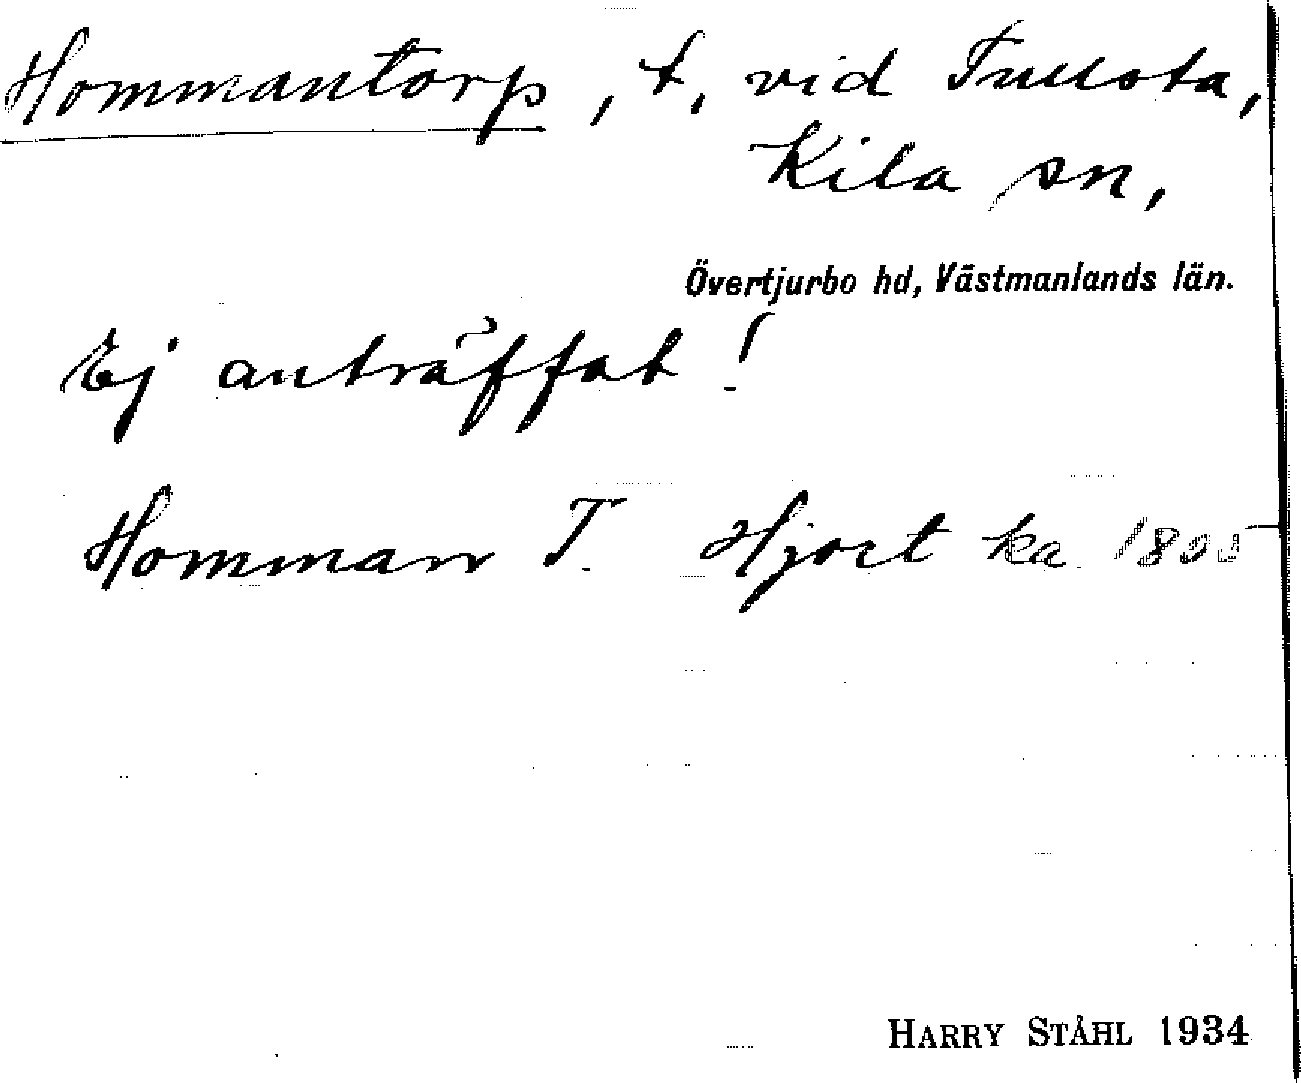 Hommantorp, t, vid Tullsta,
Kila sn,
Övertjurbo hd, Västmanlands län.
Ej anträffat!
Homman T. Hjort ka 1805
HARRY STÅHL 1934